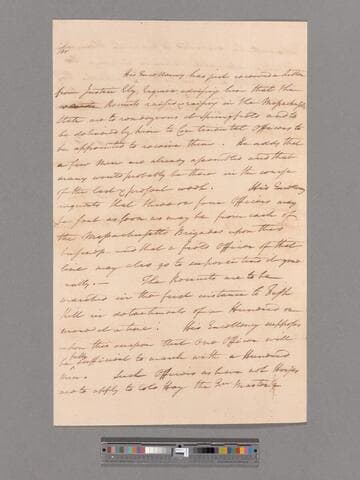 Sir
His Excellency has just received a letter
from Justin Ely Esquire advising him that the
Recruits raised & raising in the Massachusetts
State are to rendezvous at Springfield and to
be delivered by him to Continental Officers to
be appointed to receive them. He adds that
a few Men are already assembled and that
many would probably be there in the course
of the last & present week. His Excellency
requests that three or four Officers may
be sent as soon as may be from each of
the Massachusetts Brigades upon this
business and that a field Officer of that
line may also go to superintend gene
rally.— The Recruits are to be
marched in the first instance to Fish
Kill in detachments of a Hundred or
more at a time. His Excellency supposes
upon this occasion that One Officer will
be fully sufficient to march with a Hundred
Men. Such Officers as have not Horses
are to apply to Colo Hay the Qr Master